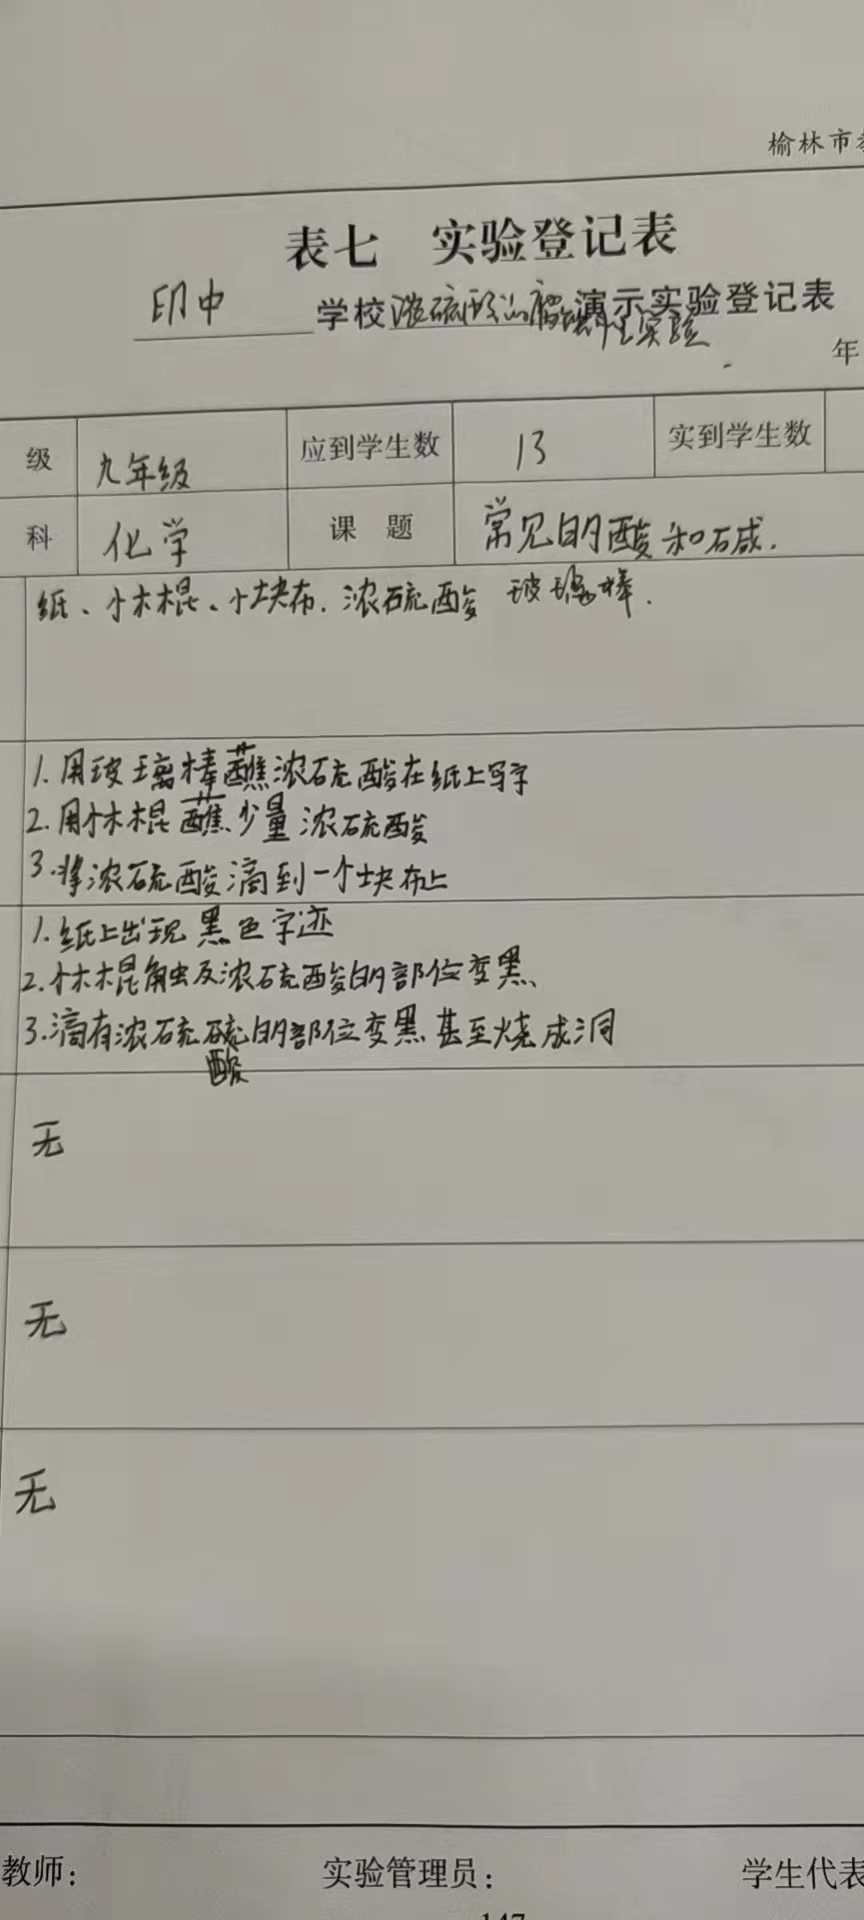 榆林市教
表七 实验登记表
印中学校浓硫酸的腐蚀性实验演示实验登记表
年
级 九年级 应到学生数 13 实到学生数
科 化学 课题 常见的酸和碱.
纸、小木棍、小块布.浓硫酸 玻璃棒.
1.用玻璃棒蘸浓硫酸在纸上写字
2.用小木棍蘸少量浓硫酸
3.将浓硫酸滴到一小块布上
1.纸上出现黑色字迹
2.小木棍触及浓硫酸的部位变黑、
3.滴有浓硫硫的部位变黑甚至烧成洞
酸
无
无
无
教师: 实验管理员: 学生代表
147